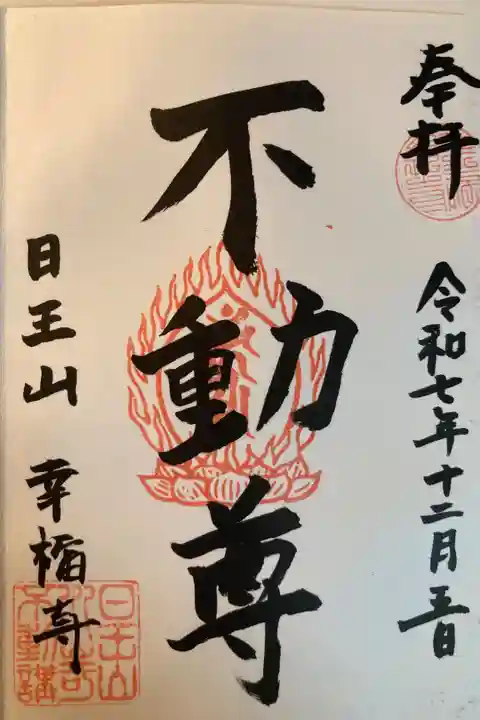 奉拝
令和七年十二月五日
不動尊
日王山 幸福寺